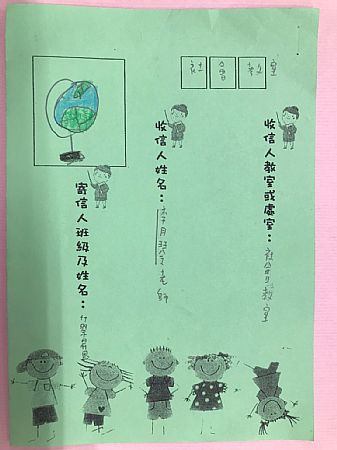 社會教室
收信人教室或處室：社會教室
收信人姓名：李月
老師
寄信人班級及姓名：